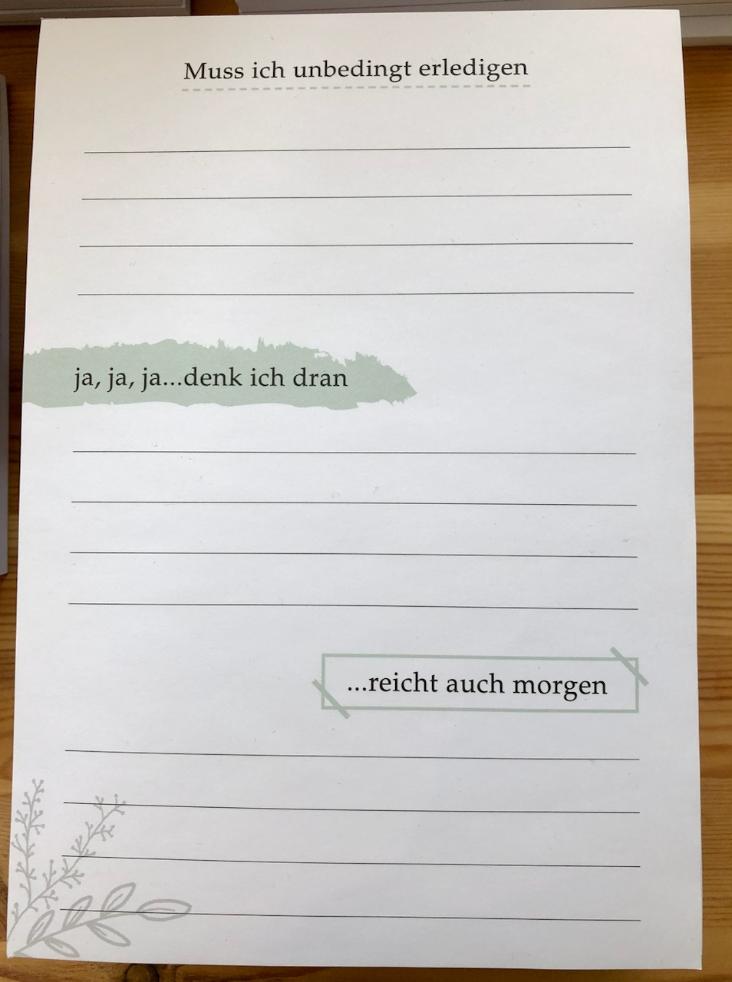 Muss ich unbedingt erledigen
ja, ja, ja...denk ich dran
...reicht auch morgen